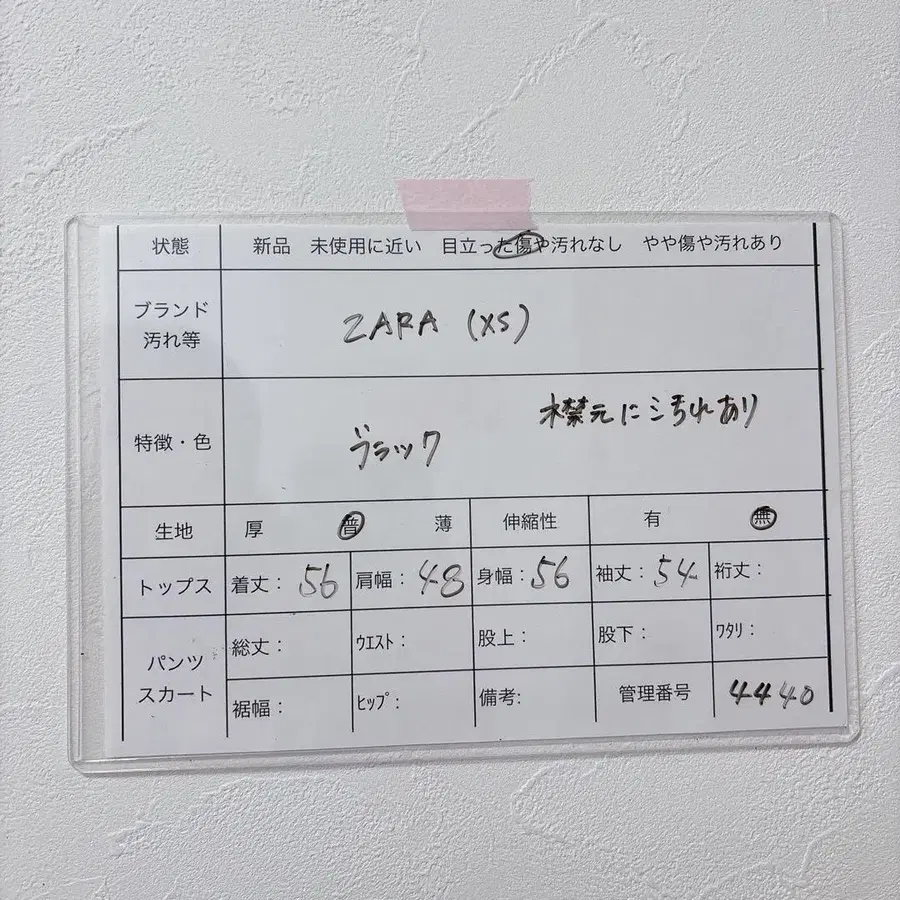 状態 新品 未使用に近い 目立った傷や汚れなし やや傷や汚れあり
ブランド
汚れ等
ZARA (XS)
特徴・色
ブラック
襟元に汚れあり
生地 厚 普 薄 伸縮性 有 無
トップス 着丈: 56 肩幅: 48 身幅: 56 袖丈: 54 裄丈:
パンツ
スカート
総丈: ウエスト: 股上: 股下: ワタリ:
裾幅: ヒップ: 備考: 管理番号 4440